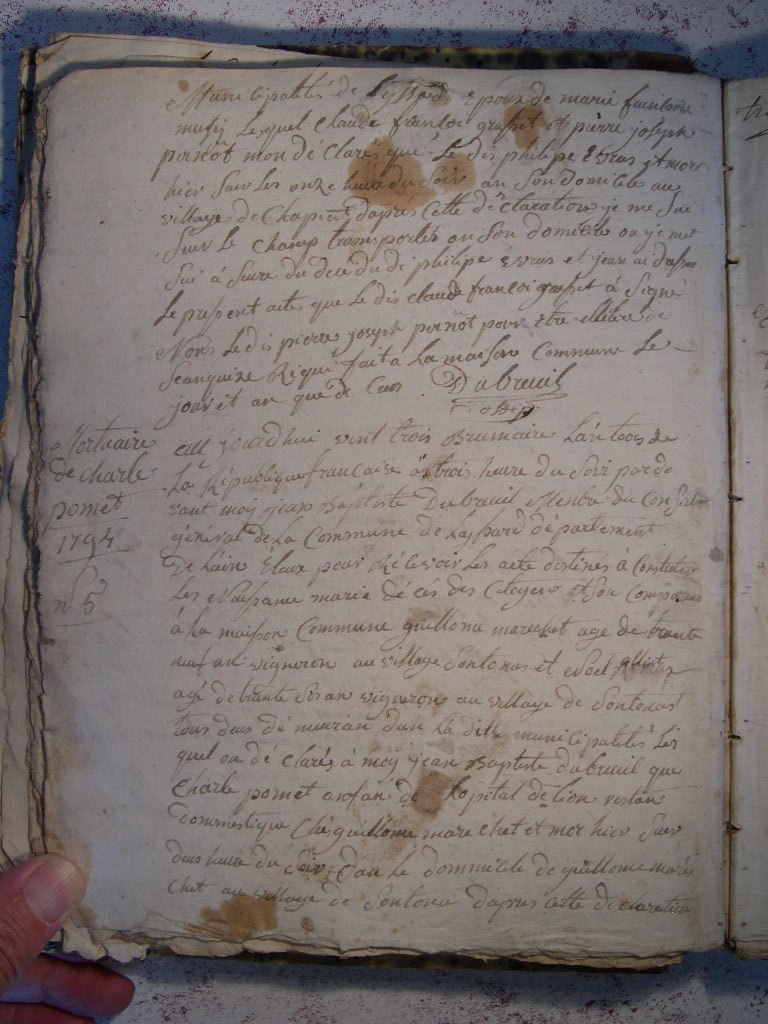 Municipalités de epoux de marie francoise
musy Lesquel Claude francoi grasset et pierre joseph
pernöt mon dé Clarés que Le dis philipe Evras et mor
hier sur Les onze heure du Soir an Son domicile au
village de Chapiat dapres Cette dé Claration je me Sui
Sur Le Champ transportés an Son domicile ou je met
Sui a Sure du décé du di philipe Evras et jean ai dressé
Le present acte que Le dis claude françoi grasset à Signé
Nons Le dis pierre joseph pernöt pour être
De anquire Réqui fait a La maison Commune Le
jour et an que de Cus Dubreuil
off p
Mortuaire
de charle
pomet
1794
n° 5
aujourdhui vint trois Brumaire Lan trois de
La République francaise à trois heure du Soir par de
vant moy jean Baptiste Dubreuil Menbre du Conseil
général de La Commune de Layssard département
De Lain Elux pour Recevoir Les acte destinés à Constater
Les Naissance marie décès des Citoyens et Son Comparus
à La maison Commune guillome marechet age de trante
neuf an vigneron au village Sontonas et Noel
agé de trante Sis an vigneron au village de Sontonas
tous deus dé meuran dan La ditte municipalités Les
quel on dé Clarés à moy jean Baptiste dubreuil que
Charle pomet anfan de Lopital de Lion restan
dommestique Ché guillome mare chet et mor hier Sur
deus heure du Soir dan Le dommicile de guillome maré
chet au village de Sontona dapres cette dé claration